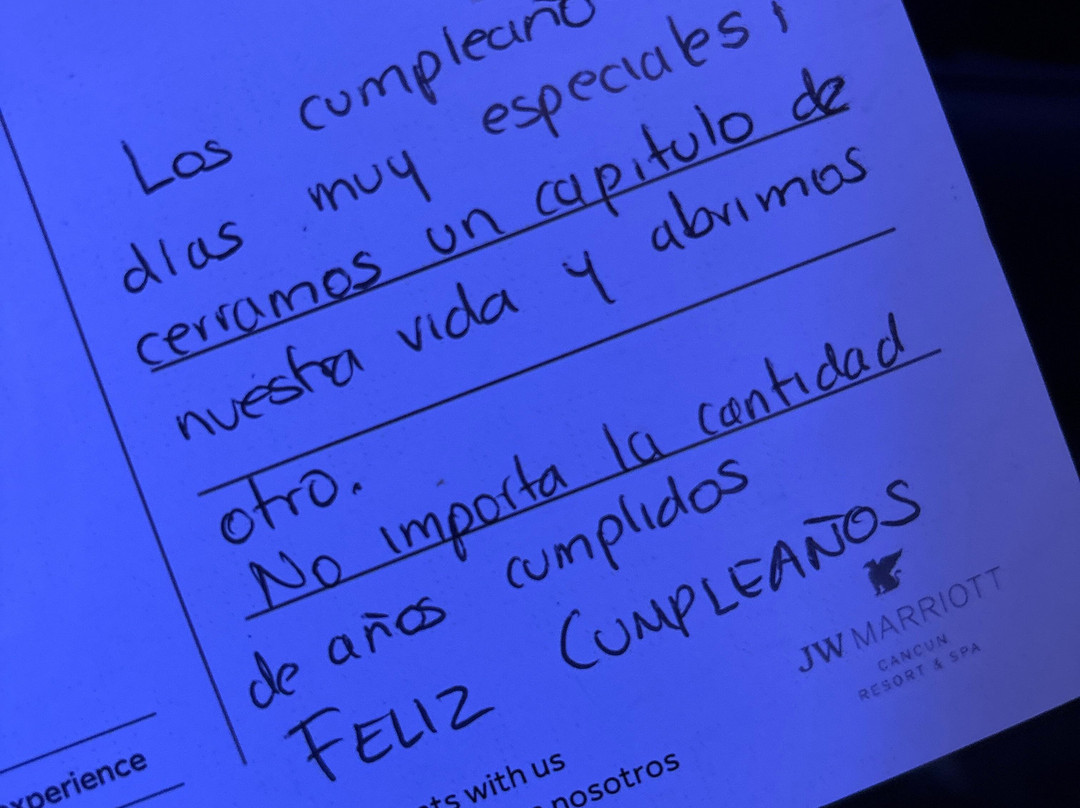 Los cumpleaño
días muy especiales,
cerramos un capitulo de
nuestra vida y abrimos
otro.
No importa la cantidad
de años cumplidos
FELIZ CUMPLEAÑOS
JW MARRIOTT
CANCUN
RESORT & SPA
xperience
ts with us
nosotros